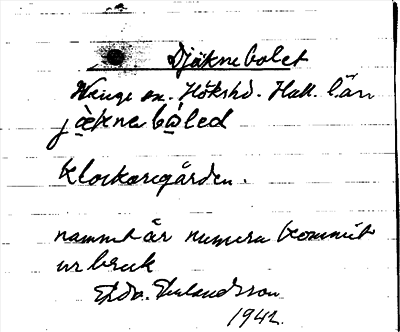 Djäknebolet
Wenge sn. Hökshd. Hall. län
jäknebåled
Klockaregården.
namnet är numera kommit
ur bruk
Erlandsson
1942.